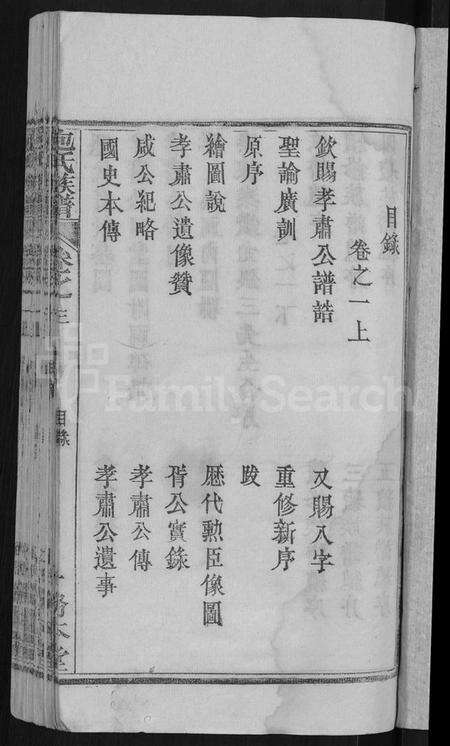 目錄
卷之一上
欽賜孝肅公譜誥
又賜八字
聖諭廣訓
重修新序
原序
跋
繪圖說
歷代勲臣像圖
孝肅公遺像贊
胥公實錄
咸公紀略
孝肅公傳
國史本傳
孝肅公遺事
包氏族譜
目錄
FamilySearch